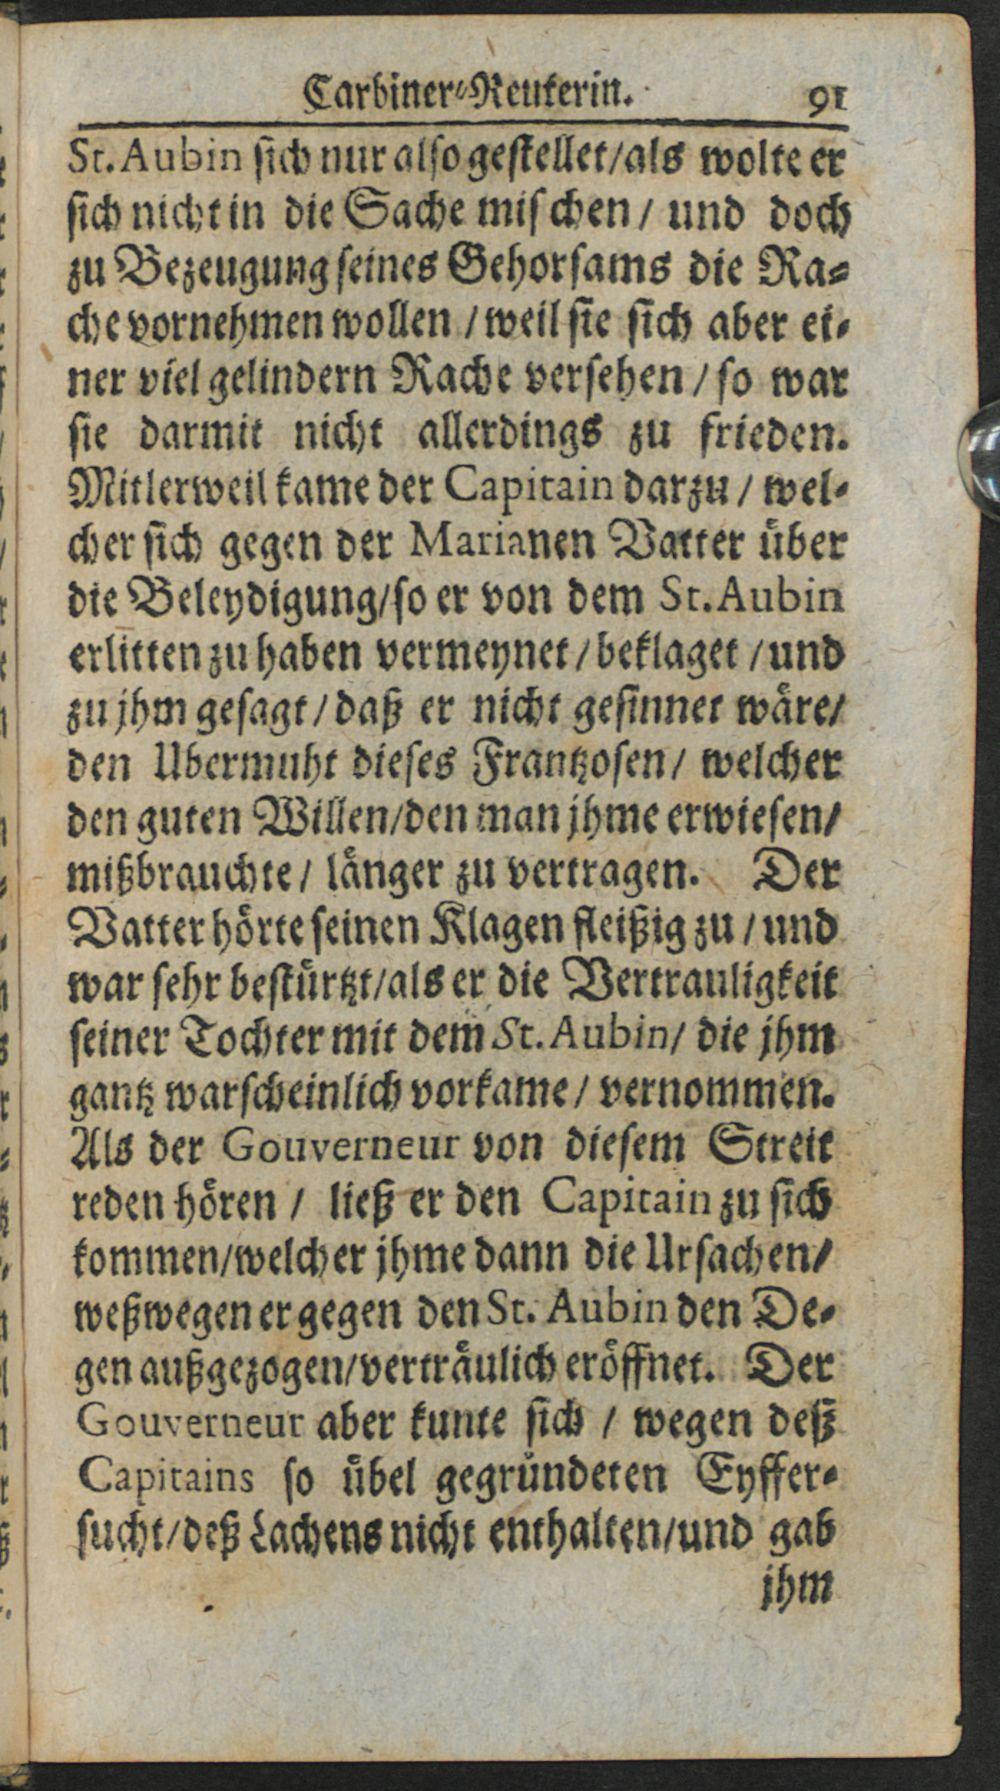 Carbiner-Reuterin. 91
St. Aubin sich nur also gestellet/als wolte er
sich nicht in die Sache mischen / und doch
zu Bezeugung seines Gehorsams die Ra-
che vornehmen wollen / weil sie sich aber ei-
ner viel gelindern Rache versehen / so war
sie darmit nicht allerdings zu frieden.
Mitlerweil kame der Capitain darzu / wel-
cher sich gegen der Marianen Vatter über
die Beleydigung/so er von dem St. Aubin
erlitten zu haben vermeynet / beklaget / und
zu jhm gesagt / daß er nicht gesinnet wäre/
den Ubermuht dieses Frantzosen / welcher
den guten Willen/den man jhme erwiesen/
mißbrauchte / länger zu vertragen. Der
Vatter hörte seinen Klagen fleißig zu / und
war sehr bestürtzt/als er die Vertrauligkeit
seiner Tochter mit dem St. Aubin/ die jhm
gantz warscheinlich vorkame / vernommen.
Als der Gouverneur von diesem Streit
reden hören / ließ er den Capitain zu sich
kommen/welcher jhme dann die Ursachen/
weßwegen er gegen den St. Aubin den De-
gen außgezogen/verträulich eröffnet. Der
Gouverneur aber kunte sich / wegen deß
Capitains so übel gegründeten Eyffer-
sucht/deß Lachens nicht enthalten/und gab
jhm